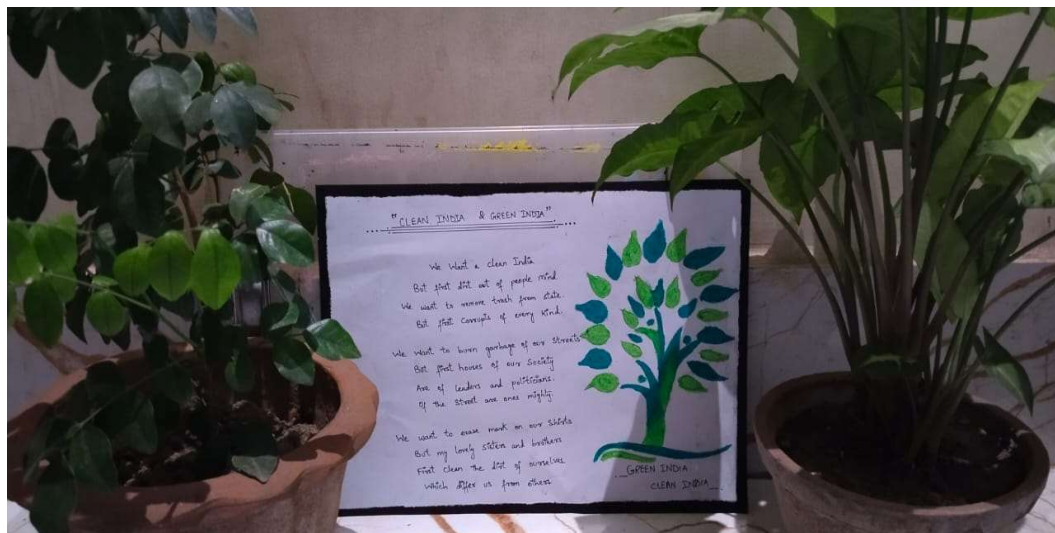 "CLEAN INDIA & GREEN INDIA"
We Want a clean India
But first dirt out of people mind
We want to remove trash from state.
But first Corrupts of every kind.
We want to burn garbage of our streets
But first homes of our Society
Are of leaders and politicians.
Of the Street are ones mighty.
We want to erase mark on our shirts
But my lovely Sisters and brothers
First clean the dirt of ourselves
Which differ us from others
GREEN INDIA
CLEAN INDIA